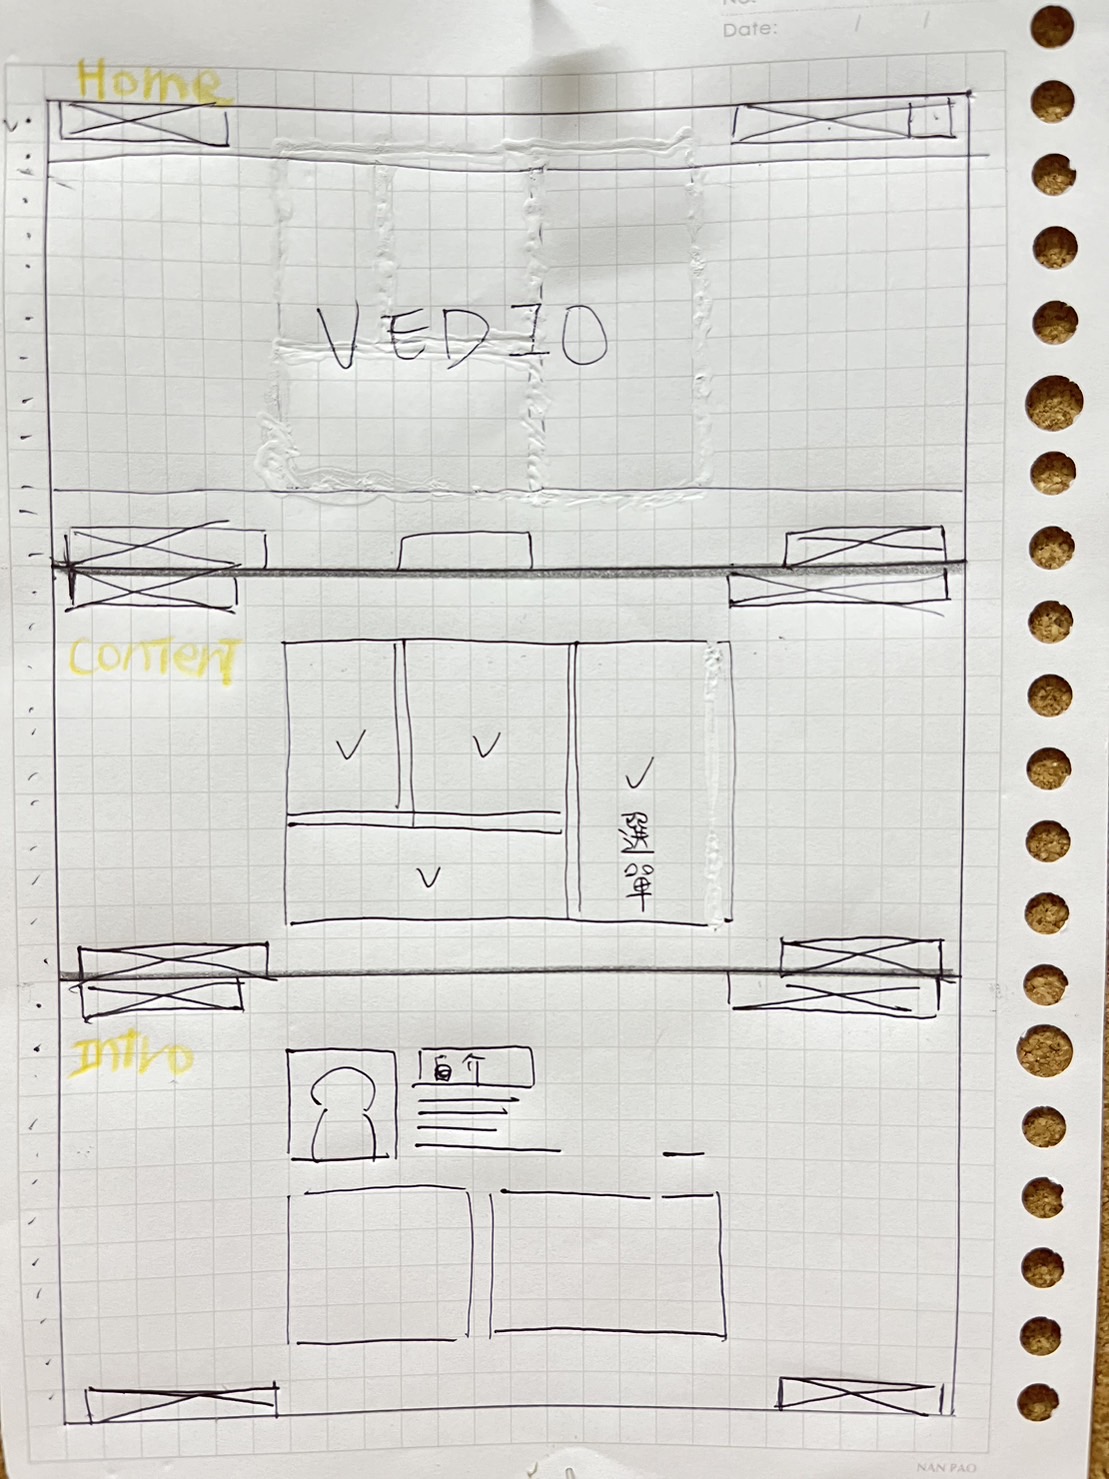 Date: / /
Home
VEDIO
Content
選單
Intro
自介
NAN PAO